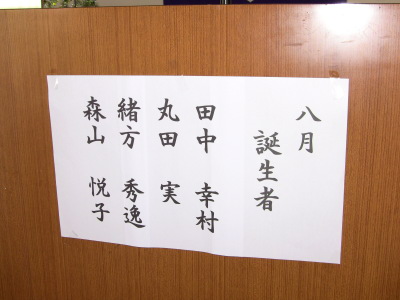 八月
誕生者
田中 幸村
丸田 実
緒方 秀逸
森山 悦子